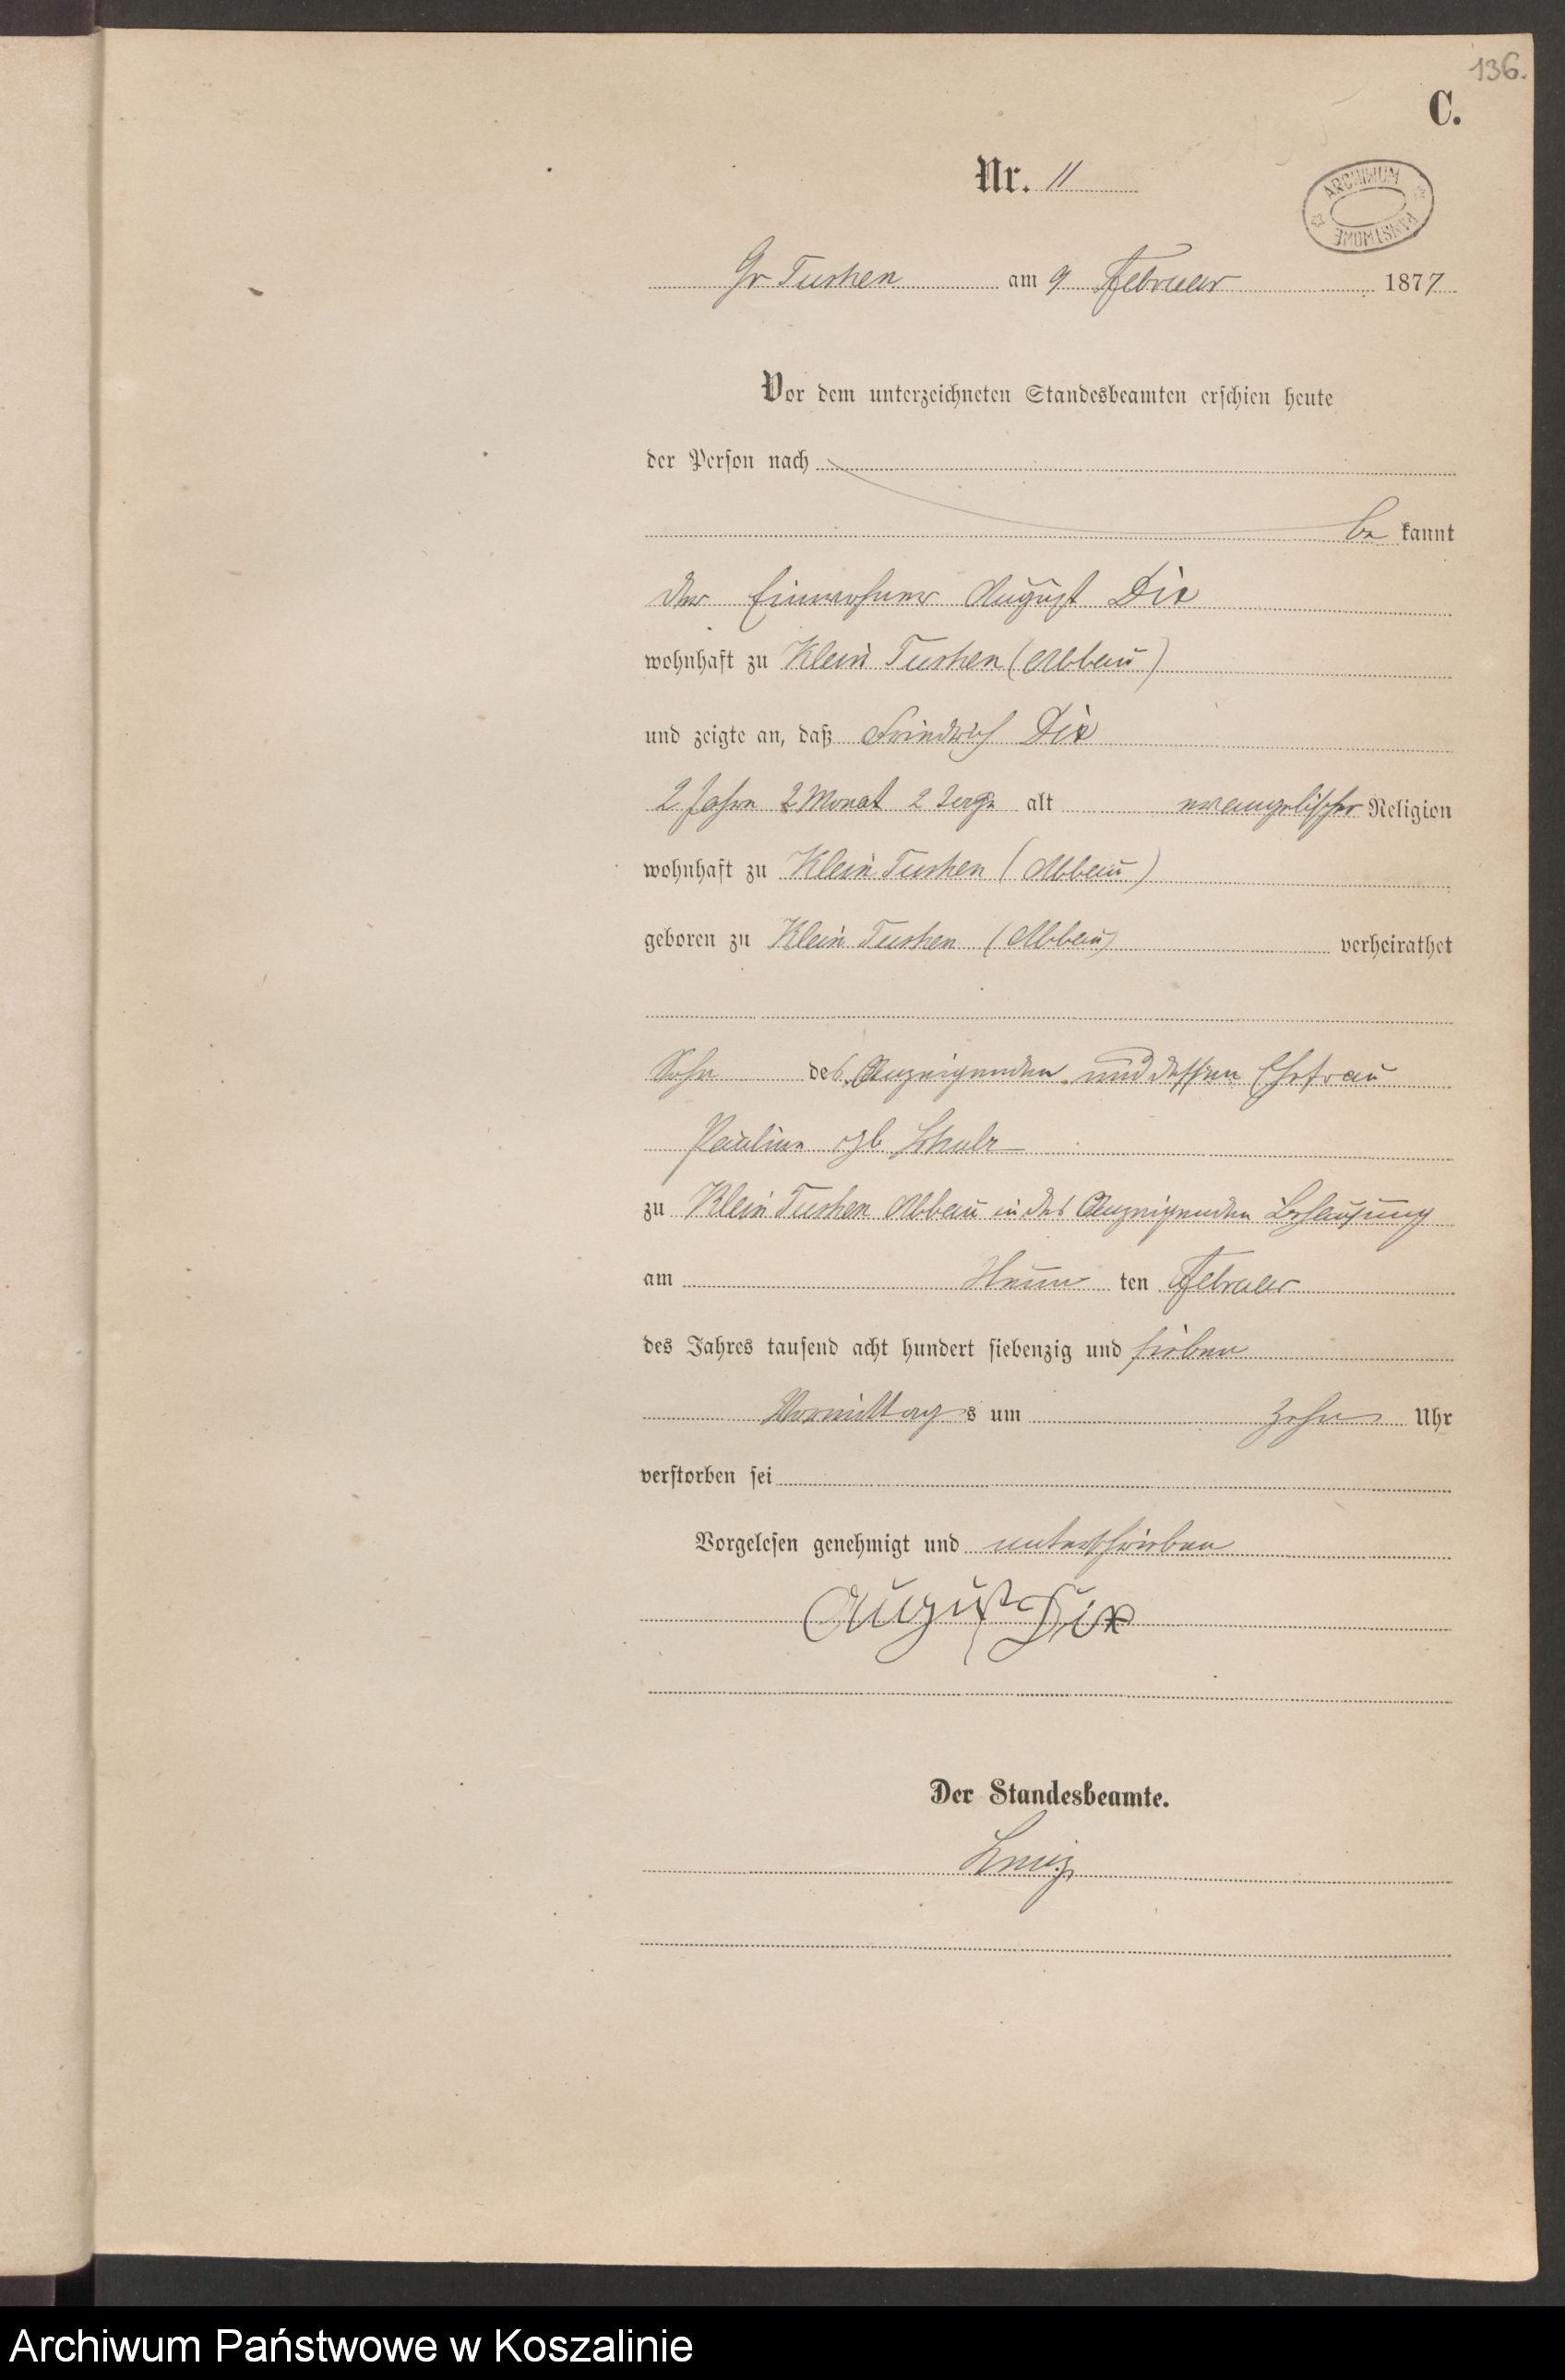 136.
C.
Nr. 11
ARCHIWUM PAŃSTWOWE
Gr Tuchen am 9 Februar 1877
Vor dem unterzeichneten Standesbeamten erschien heute
der Person nach
be kannt
der Einwohner August Dix
wohnhaft zu Klein Tuchen (Abbau)
und zeigte an, daß Friedrich Dix
2 Jahre 2 Monat 2 Tage alt evangelischer Religion
wohnhaft zu Klein Tuchen (Abbau)
geboren zu Klein Tuchen (Abbau) verheirathet
Sohn des Anzeigenden und dessen Ehefrau
Pauline geb
zu Klein Tuchen Abbau in des Anzeigenden Behausung
am Neun ten Februar
des Jahres tausend acht hundert siebenzig und sieben
Vormittag s um zehn Uhr
verstorben sei
Vorgelesen genehmigt und unterschrieben
August Dix
Der Standesbeamte.
Archiwum Państwowe w Koszalinie